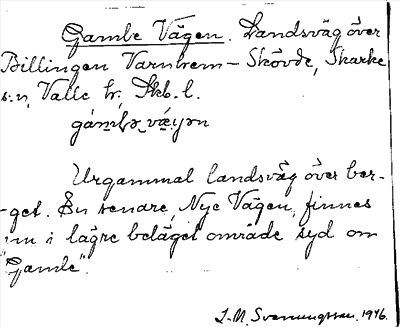 Gamle Vägen. Landsväg över
Billingen Varnhem - Skövde, Skarke
s:n, Valle hd, Skb. l.
gámlə vä́γən
Urgammal landsväg över ber-
get. En senare, Nye Vägen, finnes
nu i lägre beläget område syd om
"Gamle".
J.-M. Svenungsson. 1946.